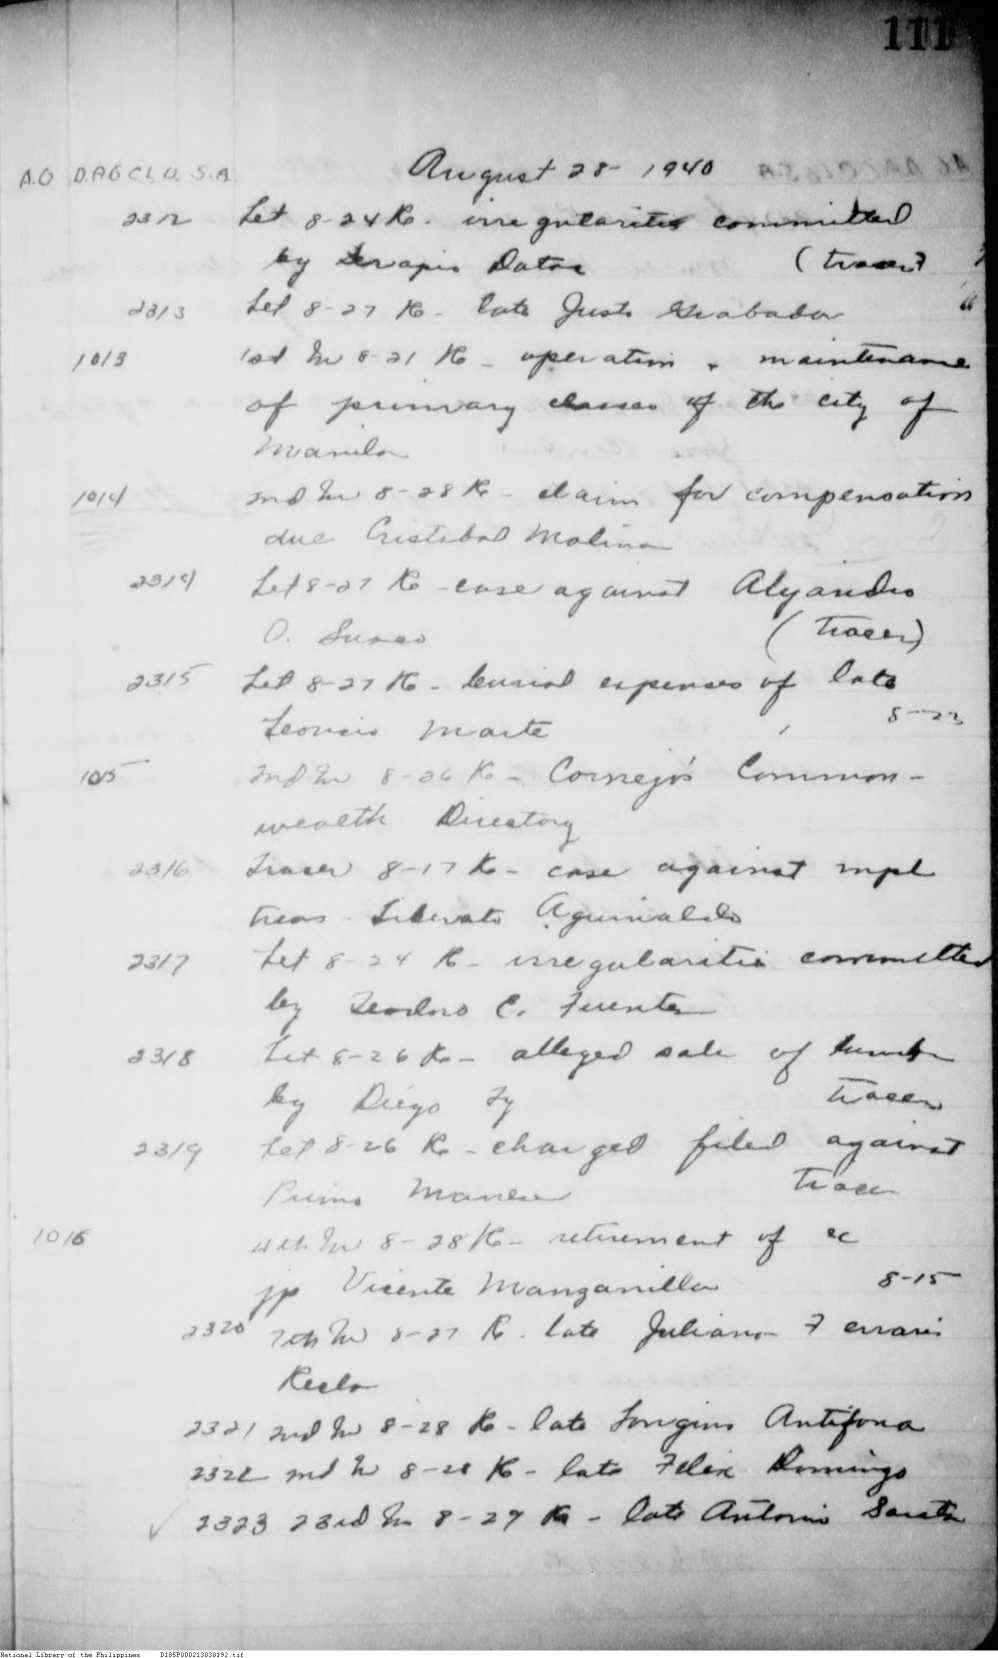 111
A.O D.AGCLO. S.A. August 28- 1940
2312 Let 8-24 Re- irregularities committed
by Serapio Datoc (tracer)
2313 Let 8-27 Re- late Justo
1013 1st In 8-21 Re- operation & maintenance
of primary classes of the city of
Manila
1014 2nd In 8-28 Re- claim for compensation
due Cristobal Molina
2314 Let 8-27 Re- case against Alejandro
O. (Tracer)
2315 Let 8-27 Re- burial expenses of late
Leoncio Marte 8-22
1015 2nd In 8-26 Re- Cornejo's Common-
wealth Directory
2316 Tracer 8-17 Re- case against mpl
treas. Liberato Aguinaldo
2317 Let 8-24 Re- irregularities committed
by Teodoro C. Fuentes
2318 Let 8-26 Re- alleged sale of lumber
by Diego Ty Tracer
2319 Let 8-26 Re- charged filed against
Primo Tracer
1016 4th In 8-28 Re- retirement of ex
jp Vicente Manganilla 8-15
2320 7th In 8-27 Re- late Juliana
Recla
2321 2nd In 8-28 Re- late Longino Antifona
2322 2nd In 8-28 Re- late Felix Domingo
2323 23rd In 8-27 Re- late Antonio
National Library of the Philippines D185P000213830192.tif